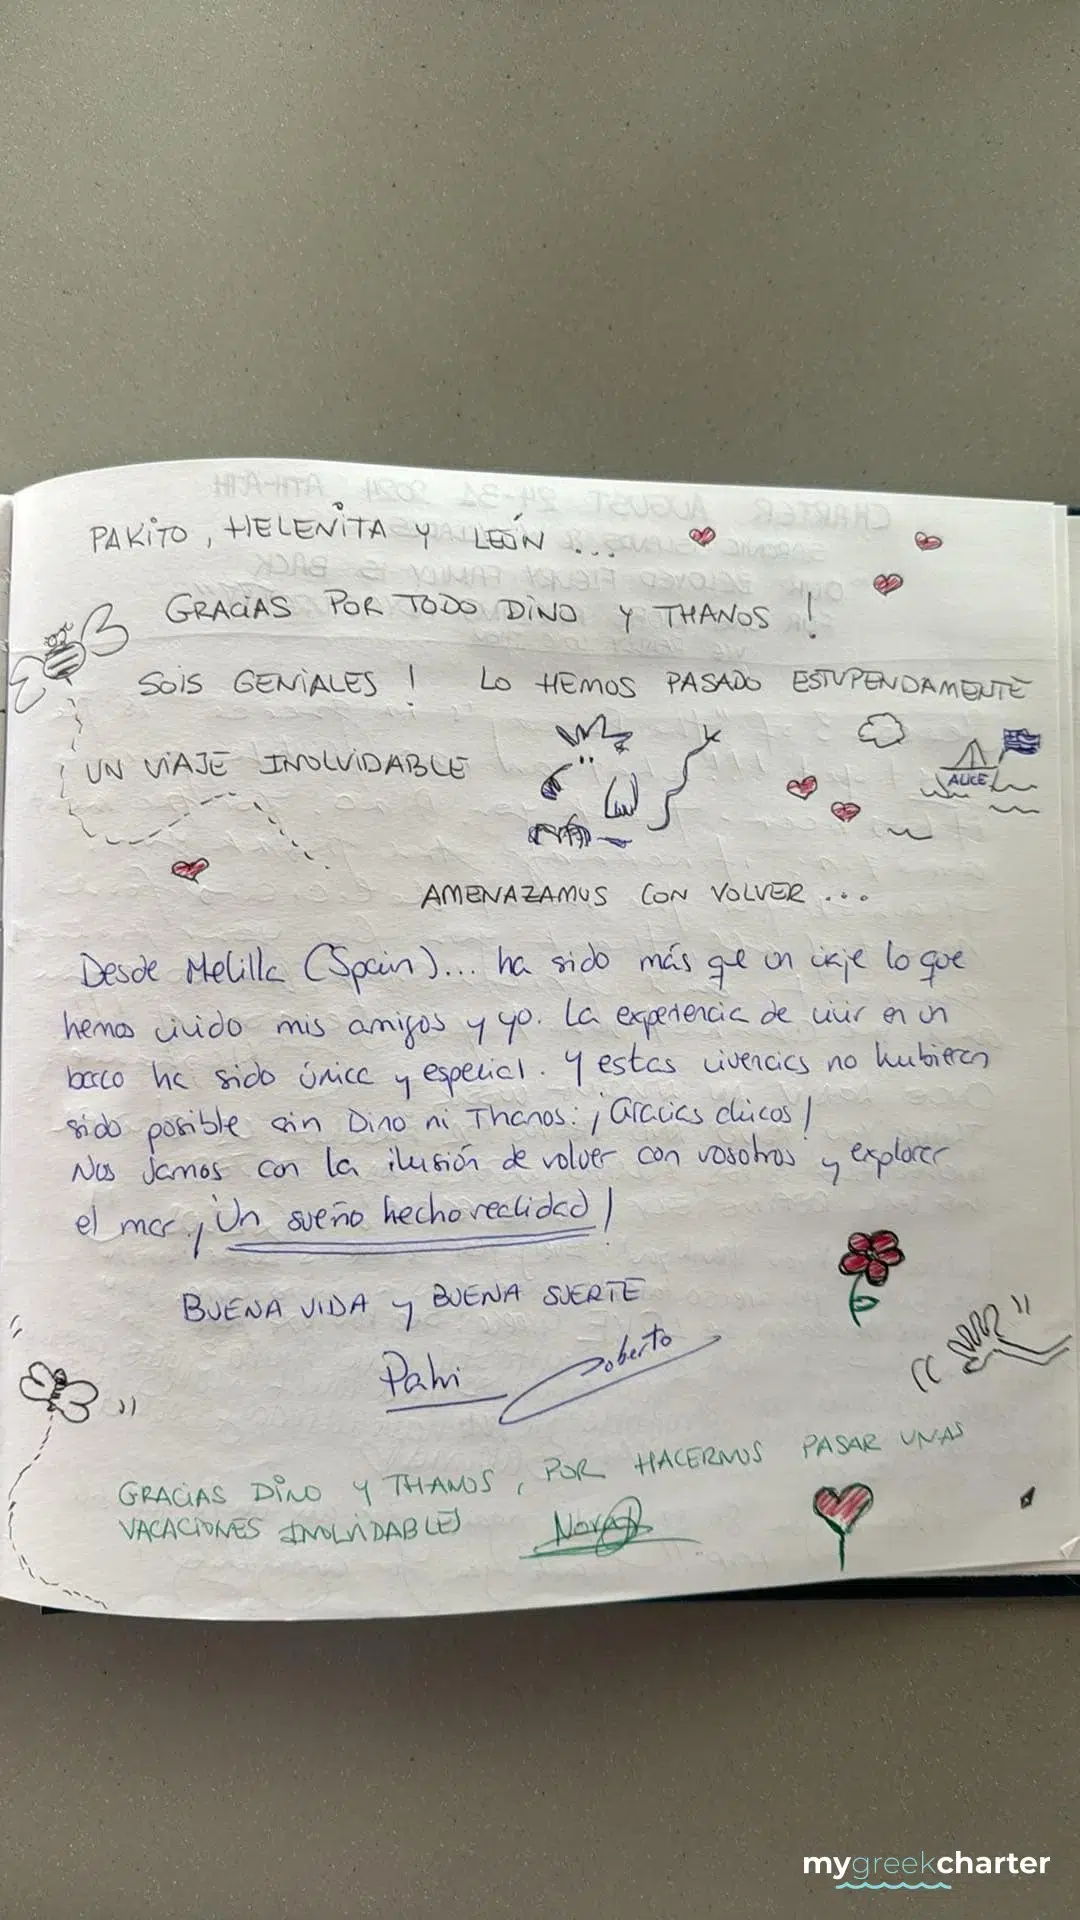 PAKITO, HELENITA Y LEÓN ...
GRACIAS POR TODO DINO Y THANOS !
SOIS GENIALES ! LO HEMOS PASADO ESTUPENDAMENTE
UN VIAJE INOLVIDABLE
ALICE
AMENAZAMOS CON VOLVER ...
Desde Melilla (Spain)... ha sido más que un viaje lo que
hemos vivido mis amigos y yo. La experiencia de vivir en un
barco ha sido única y especial. Y estas vivencias no hubieran
sido posible sin Dino ni Thanos: ¡Gracias chicos!
Nos vamos con la ilusión de volver con vosotros y explorar
el mar. ¡Un sueño hecho realidad!
BUENA VIDA y BUENA SUERTE
Roberto
GRACIAS DINO Y THANOS, POR HACERNOS PASAR UNAS
VACACIONES INOLVIDABLES
Nora
mygreekcharter